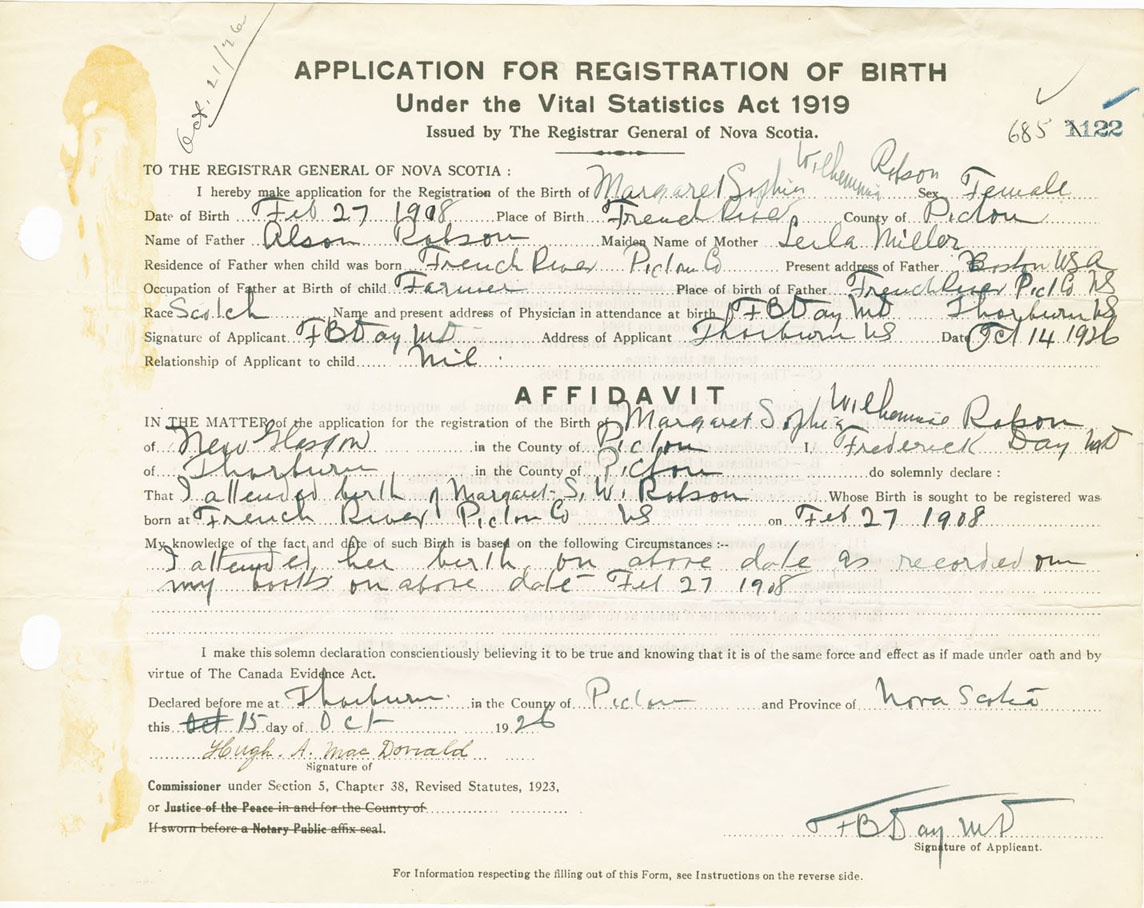 Oct. 21/26
APPLICATION FOR REGISTRATION OF BIRTH
Under the Vital Statistics Act 1919
685 1122
Issued by The Registrar General of Nova Scotia.
TO THE REGISTRAR GENERAL OF NOVA SCOTIA :
I hereby make application for the Registration of the Birth of Margaret Sophia Wilhemmia Robson Sex Female
Date of Birth Feb 27, 1908 Place of Birth French River County of Pictou
Name of Father Alson Robson Maiden Name of Mother Leila Miller
Residence of Father when child was born French River Pictou Co Present address of Father Boston USA
Occupation of Father at Birth of child Farmer Place of birth of Father French River Pict Co NS
Race Scotch Name and present address of Physician in attendance at birth FB Day MD Thorburn NS
Signature of Applicant FB Day MD Address of Applicant Thorburn NS Date Oct 14 1926
Relationship of Applicant to child Nil
AFFIDAVIT
IN THE MATTER of the application for the registration of the Birth of Margaret Sophia Wilhemmia Robson
of New Glasgow in the County of Pictou I, Frederick Day MD
of Thorburn in the County of Pictou do solemnly declare :
That I attended birth of Margaret S. W. Robson Whose Birth is sought to be registered was
born at French River Pictou Co NS on Feb 27 1908
My knowledge of the fact and date of such Birth is based on the following Circumstances :--
I attended her birth on above date as recorded on
my books on above date Feb 27 1908
I make this solemn declaration conscientiously believing it to be true and knowing that it is of the same force and effect as if made under oath and by
virtue of The Canada Evidence Act.
Declared before me at Thorburn in the County of Pictou and Province of Nova Scotia
this Oct 15 day of Oct 1926
Hugh. A. MacDonald
Signature of
Commissioner under Section 5, Chapter 38, Revised Statutes, 1923,
or Justice of the Peace in and for the County of
If sworn before a Notary Public affix seal.
FB Day MD
Signature of Applicant.
For Information respecting the filling out of this Form, see Instructions on the reverse side.